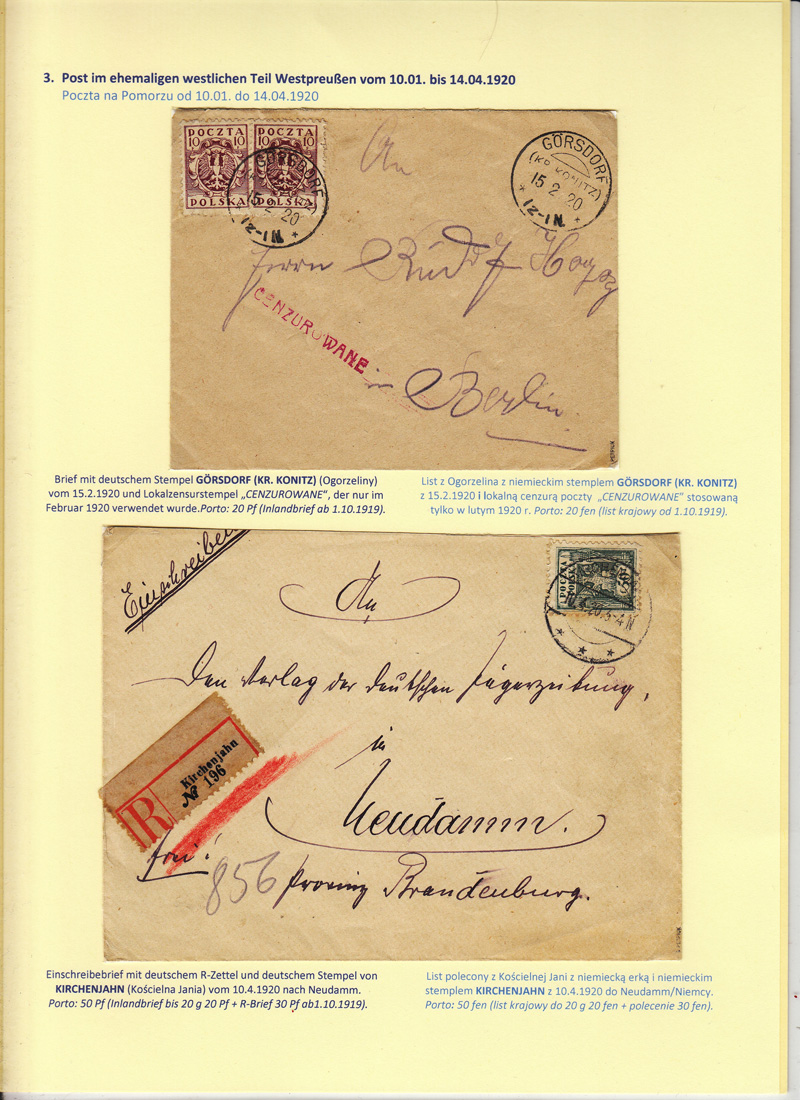 3. Post im ehemaligen westlichen Teil Westpreußen vom 10.01. bis 14.04.1920
Poczta na Pomorzu od 10.01. do 14.04.1920
POCZTA POCZTA
10 10 10 10
POLSKA POLSKA
GÖRSDORF
(KR. KONITZ)
15 2 20
* 12-1N *
GÖRSDORF
(KR. KONITZ)
15 2 20
* 12-1N *
An
Herrn Rudolf
CENZUROWANE
in Berlin.
Brief mit deutschem Stempel GÖRSDORF (KR. KONITZ) (Ogorzeliny)
vom 15.2.1920 und Lokalzensurstempel „CENZUROWANE“, der nur im
Februar 1920 verwendet wurde.Porto: 20 Pf (Inlandbrief ab 1.10.1919).
List z Ogorzelina z niemieckim stemplem GÖRSDORF (KR. KONITZ)
z 15.2.1920 i lokalną cenzurą poczty „CENZUROWANE“ stosowaną
tylko w lutym 1920 r. Porto: 20 fen (list krajowy od 1.10.1919).
Einschreiben
An
POCZTA
POLSKA
50
.20.3-4N
* * *
Den Verlag der deutschen Jägerzeitung,
in
Neudamm.
Provinz Brandenburg.
Kirchenjahn
№ 196
R
frei!
856
Einschreibebrief mit deutschem R-Zettel und deutschem Stempel von
KIRCHENJAHN (Kościelna Jania) vom 10.4.1920 nach Neudamm.
Porto: 50 Pf (Inlandbrief bis 20 g 20 Pf + R-Brief 30 Pf ab1.10.1919).
List polecony z Kościelnej Jani z niemiecką erką i niemieckim
stemplem KIRCHENJAHN z 10.4.1920 do Neudamm/Niemcy.
Porto: 50 fen (list krajowy do 20 g 20 fen + polecenie 30 fen).